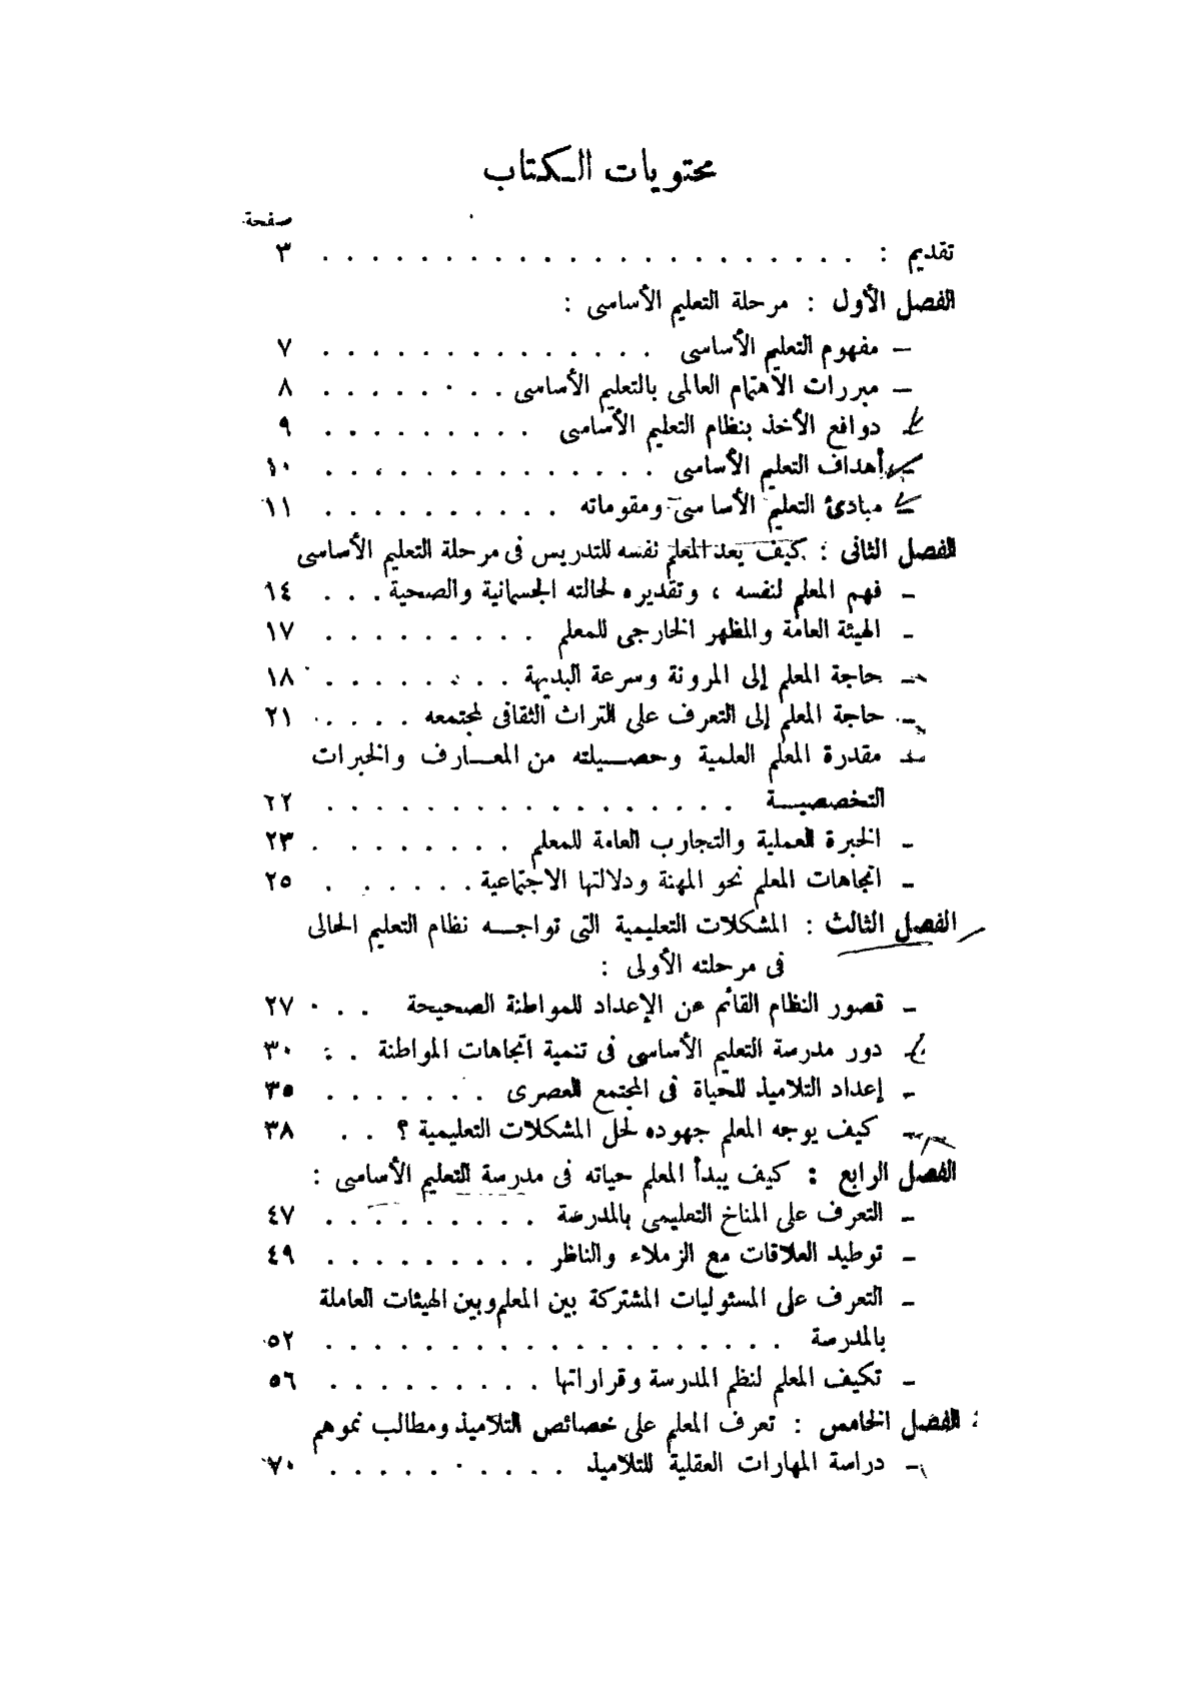 محتويات الكتاب
صفحة
تقديم : . . . . . . . . . . . . . . . . . . . . . . ٣
الفصل الأول : مرحلة التعليم الأساسى :
– مفهوم التعليم الأساسى . . . . . . . . . . . . . . ٧
– مبررات الاهتمام العالمى بالتعليم الأساسى . . . . . . . . ٨
– دوافع الأخذ بنظام التعليم الأساسى . . . . . . . . . ٩
– أهداف التعليم الأساسى . . . . . . . . . . . . . . ١٠
– مبادئ التعليم الأساسى ومقوماته . . . . . . . . . . ١١
الفصل الثانى : كيف يعد المعلم نفسه للتدريس فى مرحلة التعليم الأساسى
– فهم المعلم لنفسه ، وتقديره لحالته الجسمانية والصحية . . . ١٤
– الهيئة العامة والمظهر الخارجى للمعلم . . . . . . . . . ١٧
– حاجة المعلم إلى المرونة وسرعة البديهة . . . . . . . . ١٨
– حاجة المعلم إلى التعرف على التراث الثقافى لمجتمعه . . . . ٢١
– مقدرة المعلم العلمية وحصيلته من المعارف والخبرات
التخصصية . . . . . . . . . . . . . . . . . ٢٢
– الخبرة العملية والتجارب العامة للمعلم . . . . . . . . ٢٣
– اتجاهات المعلم نحو المهنة ودلالتها الاجتماعية . . . . . . ٢٥
الفصل الثالث : المشكلات التعليمية التى تواجه نظام التعليم الحالى
فى مرحلته الأولى :
– قصور النظام القائم عن الإعداد للمواطنة الصحيحة . . . ٢٧
– دور مدرسة التعليم الأساسى فى تنمية اتجاهات المواطنة . . ٣٠
– إعداد التلاميذ للحياة فى المجتمع العصرى . . . . . . . ٣٥
– كيف يوجه المعلم جهوده لحل المشكلات التعليمية ؟ . . ٣٨
الفصل الرابع : كيف يبدأ المعلم حياته فى مدرسة التعليم الأساسى :
– التعرف على المناخ التعليمى بالمدرسة . . . . . . . . . ٤٧
– توطيد العلاقات مع الزملاء والناظر . . . . . . . . . ٤٩
– التعرف على المسئوليات المشتركة بين المعلم وبين الهيئات العاملة
بالمدرسة . . . . . . . . . . . . . . . . . . . ٥٢
– تكيف المعلم لنظم المدرسة وقراراتها . . . . . . . . . ٥٦
الفصل الخامس : تعرف المعلم على خصائص التلاميذ ومطالب نموهم
– دراسة المهارات العقلية للتلاميذ . . . . . . . . . . ٧٠